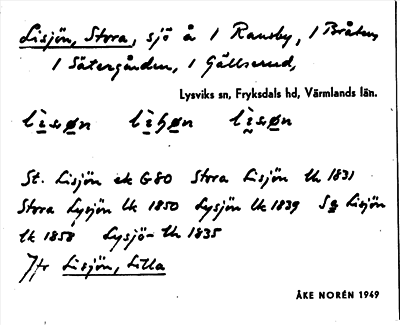 Lisjön, Stora, sjö å 1 Ransby, 1 Bråten,
1 Sätergården, 1 Gällserud,
Lysviks sn, Fryksdals hd, Värmlands län.
St. Lisjön ek G80 Stora Lisjön lk 1831
Stora Lysjön lk 1850 Lysjön lk 1839 Lisjön
lk 1858 Lysjö- lk 1835
Jfr Lisjön, Lilla
ÅKE NORÉN 1949